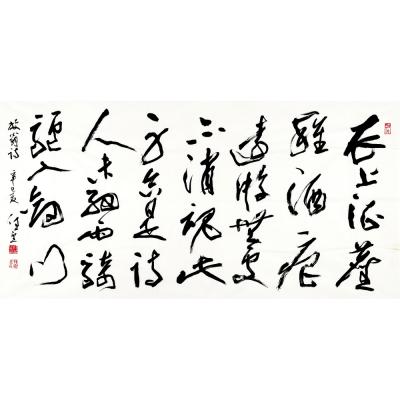 衣上征塵
雜酒痕
遠游無處
不消魂此
身合是詩
人未細雨騎
驢入劍門
放翁詩